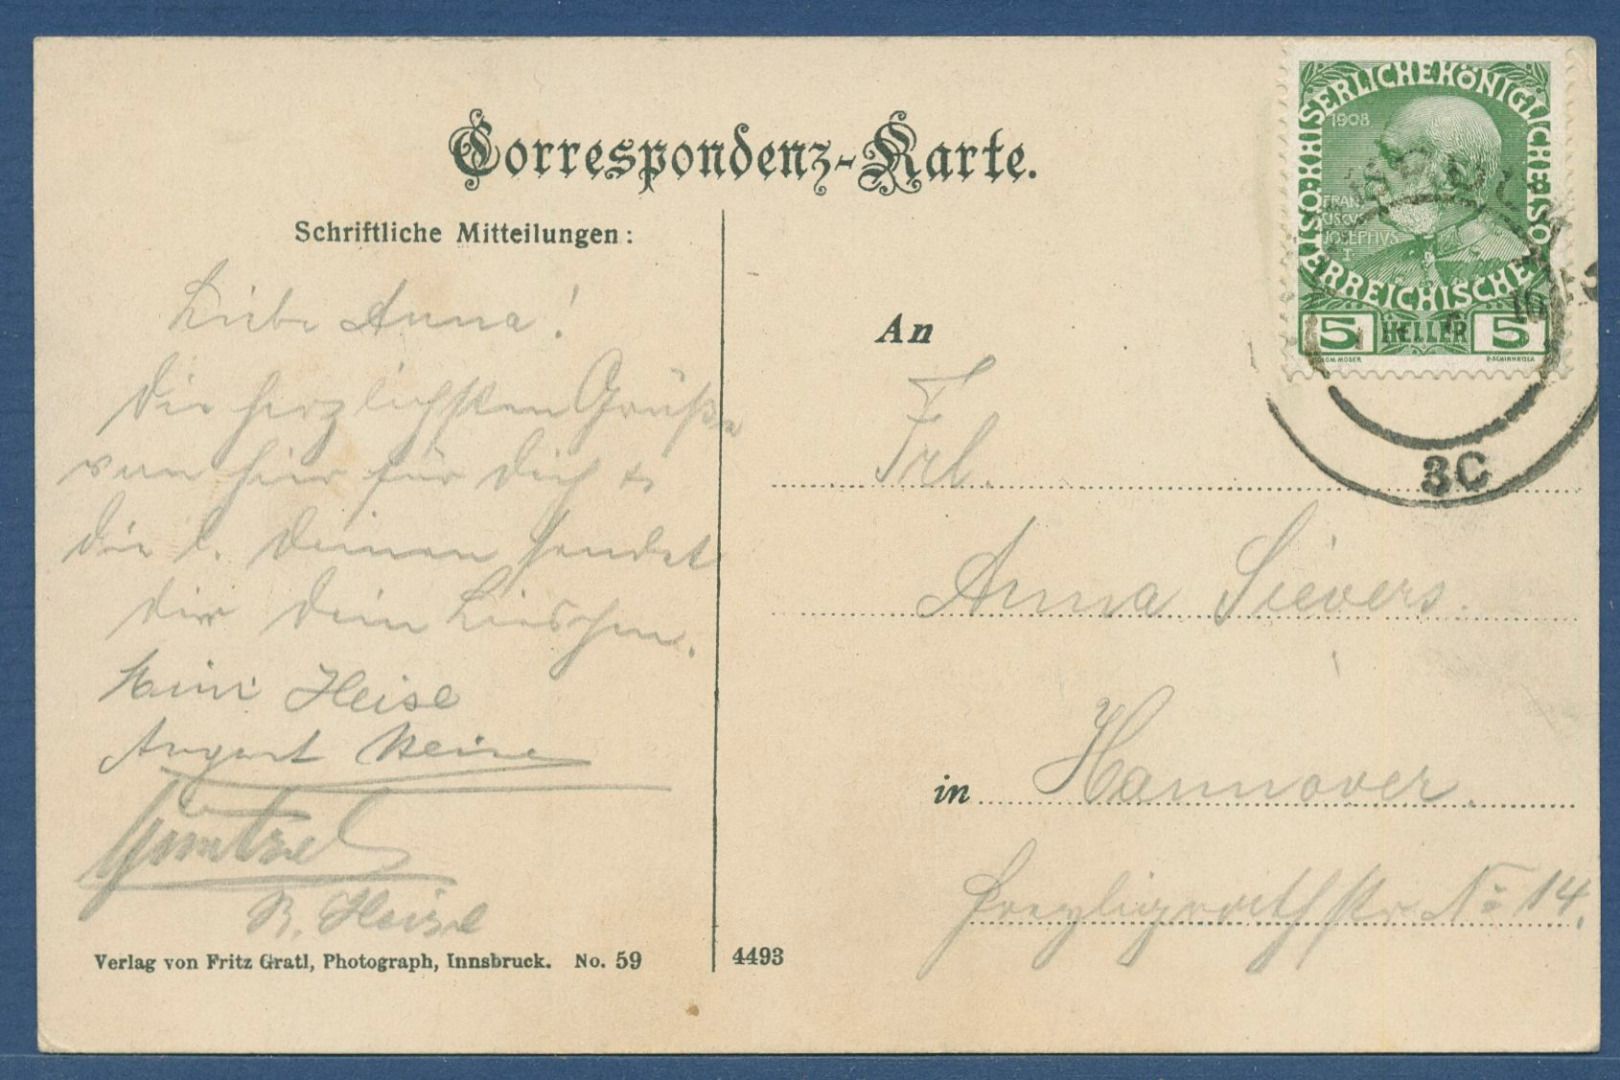 Correspondenz-Karte.
Schriftliche Mitteilungen:
Liebe Anna!
Die herzlichsten Grüße
von hier für Dich &
die l. Deinen sendet
Dir Dein Lieschen.
Heise
August Heise
R. Heise
Verlag von Fritz Gratl, Photograph, Innsbruck. No. 59
4493
KAISERLICHE KÖNIGLICHE ÖSTERREICHISCHE POST
1908
FRANCISCVS JOSEPHVS I
5 HELLER 5
KOLOM. MOSER
F. SCHIRNBÖCK
3C
An
Frl.
Anna Sievers.
in Hannover.
Freyligrathstr No 14.